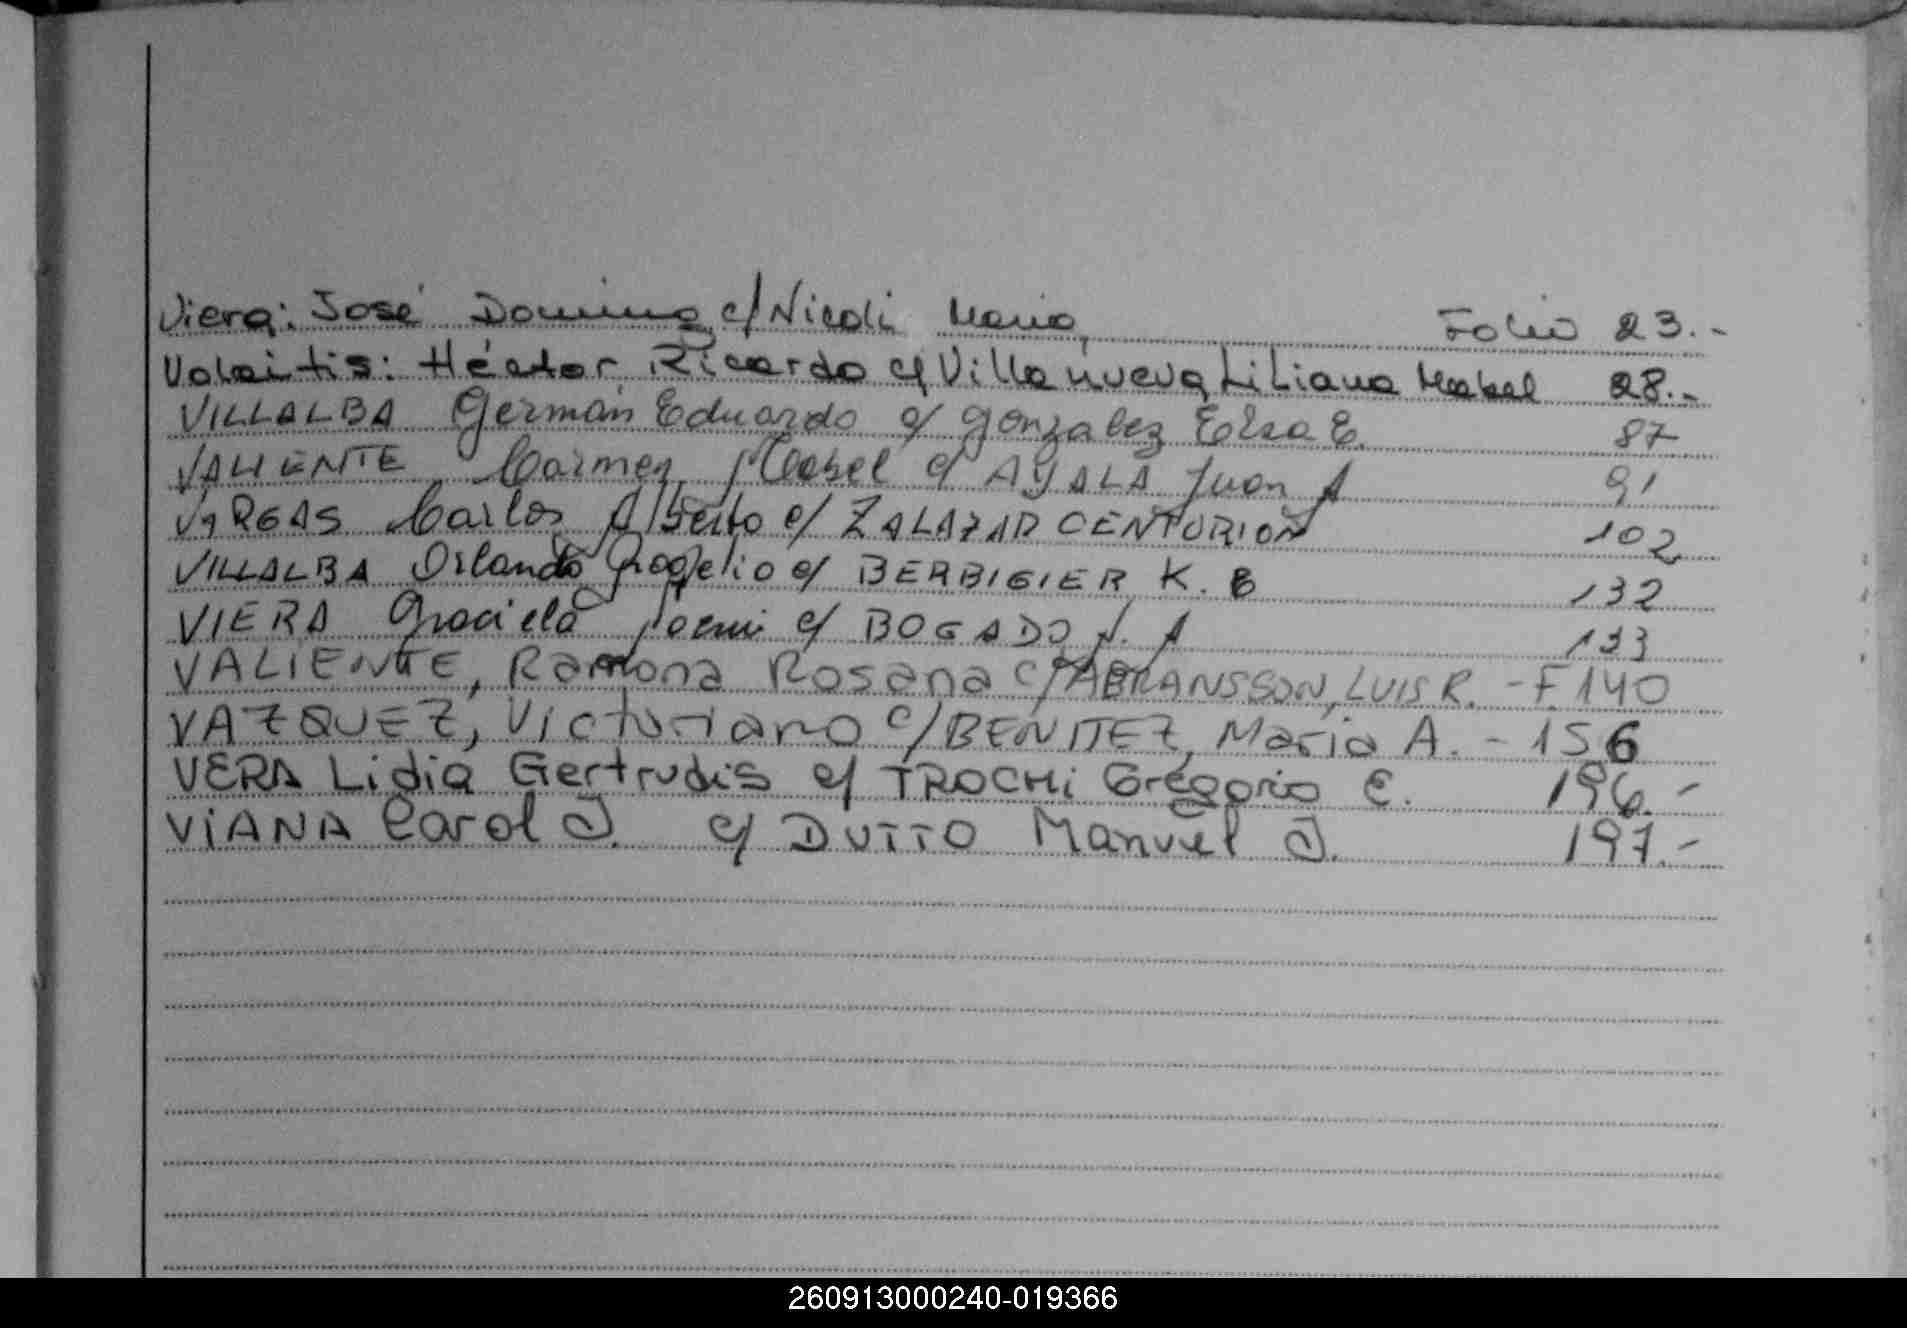 Viera: José Domingo c/ Nicoli Maria Folio 23.-
Volaitis: Héctor Ricardo c/ Villanueva Liliana Mabel 28.-
VILLALBA Germán Eduardo c/ Gonzalez Elsa E. 87
VALIENTE Carmen Mabel c/ AYALA Juan A 91
VARGAS Carlos Alberto c/ ZALAZAR CENTURION 102
VILLALBA Orlando Rogelio c/ BERBIGIER K. B 132
VIERA Graciela Noemi c/ BOGADO N. A 133
VALIENTE, Ramona Rosana c/ ABRANSSON, LUIS R. - F. 140
VAZQUEZ, Victoriano c/ BENITEZ, Maria A. - 156
VERA Lidia Gertrudis c/ TROCHi Gregorio E. 196.-
ViANA Carol J. c/ DUTTO Manuel J. 197.-
260913000240-019366